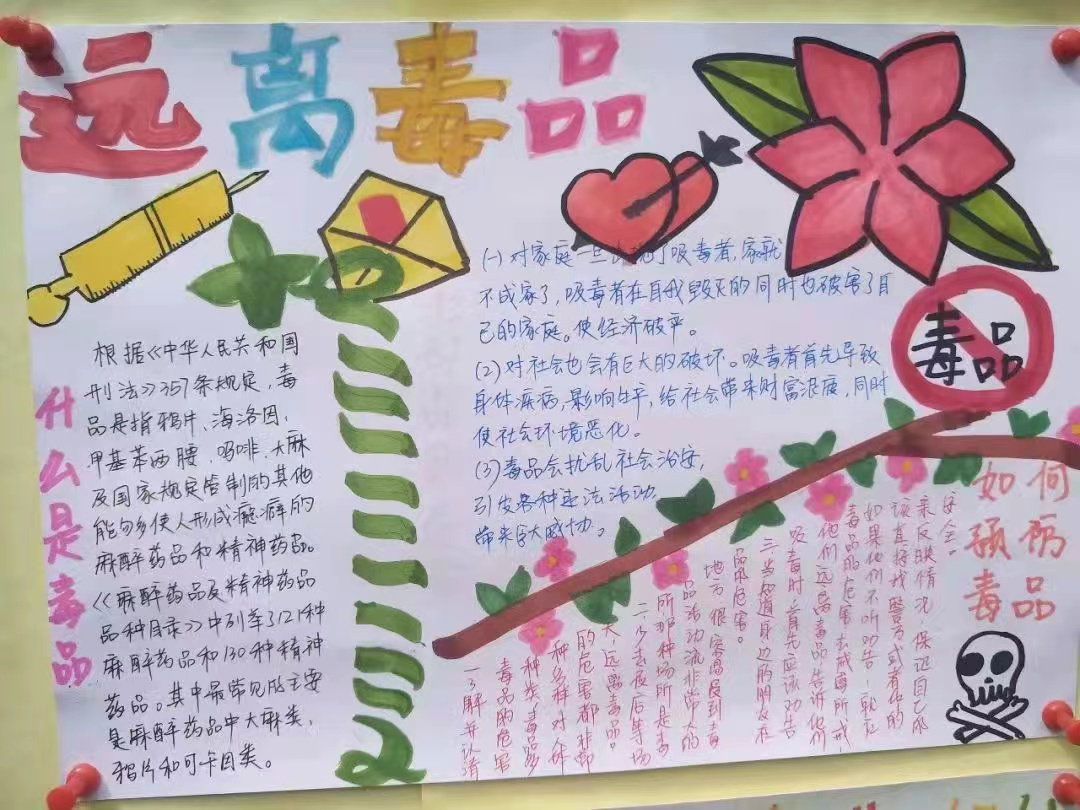 远离毒品
什么是毒品
根据《中华人民共和国
刑法》357条规定，毒
品是指鸦片、海洛因、
甲基苯丙胺、吗啡、大麻
及国家规定管制的其他
能够多使人形成瘾癖的
麻醉药品和精神药品。
《麻醉药品及精神药品
品种目录》中列举了121种
麻醉药品和130种精神
药品。其中最常见的主要
是麻醉药品中大麻类，
鸦片和可卡因类。
(1)对家庭一旦出现了吸毒者，家就
不成家了，吸毒者在自我毁灭的同时也破害了自
己的家庭。使经济破产。
(2)对社会也会有巨大的破坏。吸毒者首先导致
身体疾病，影响生产，给社会带来财富浪废，同时
使社会环境恶化。
(3)毒品会扰乱社会治安，
引发各种违法活动
带来巨大威胁。
毒品
如何
预防
毒品
一了解并认清
毒品的危害
种类，毒品多
种多样，对身体
的危害都非常
大，远离毒品。
二少去夜店等场
所，那种场所是毒
品活动流非常大的
地方，很容易受到毒
品的危害。
三当知道身边的朋友在
吸毒时，首先应该劝告
他们远离毒品，告诉他们
毒品的危害，去戒毒所戒，
如果他们不听劝告，就应
该直接找警方或者他的
亲人反映情况，保证自己的
安全。